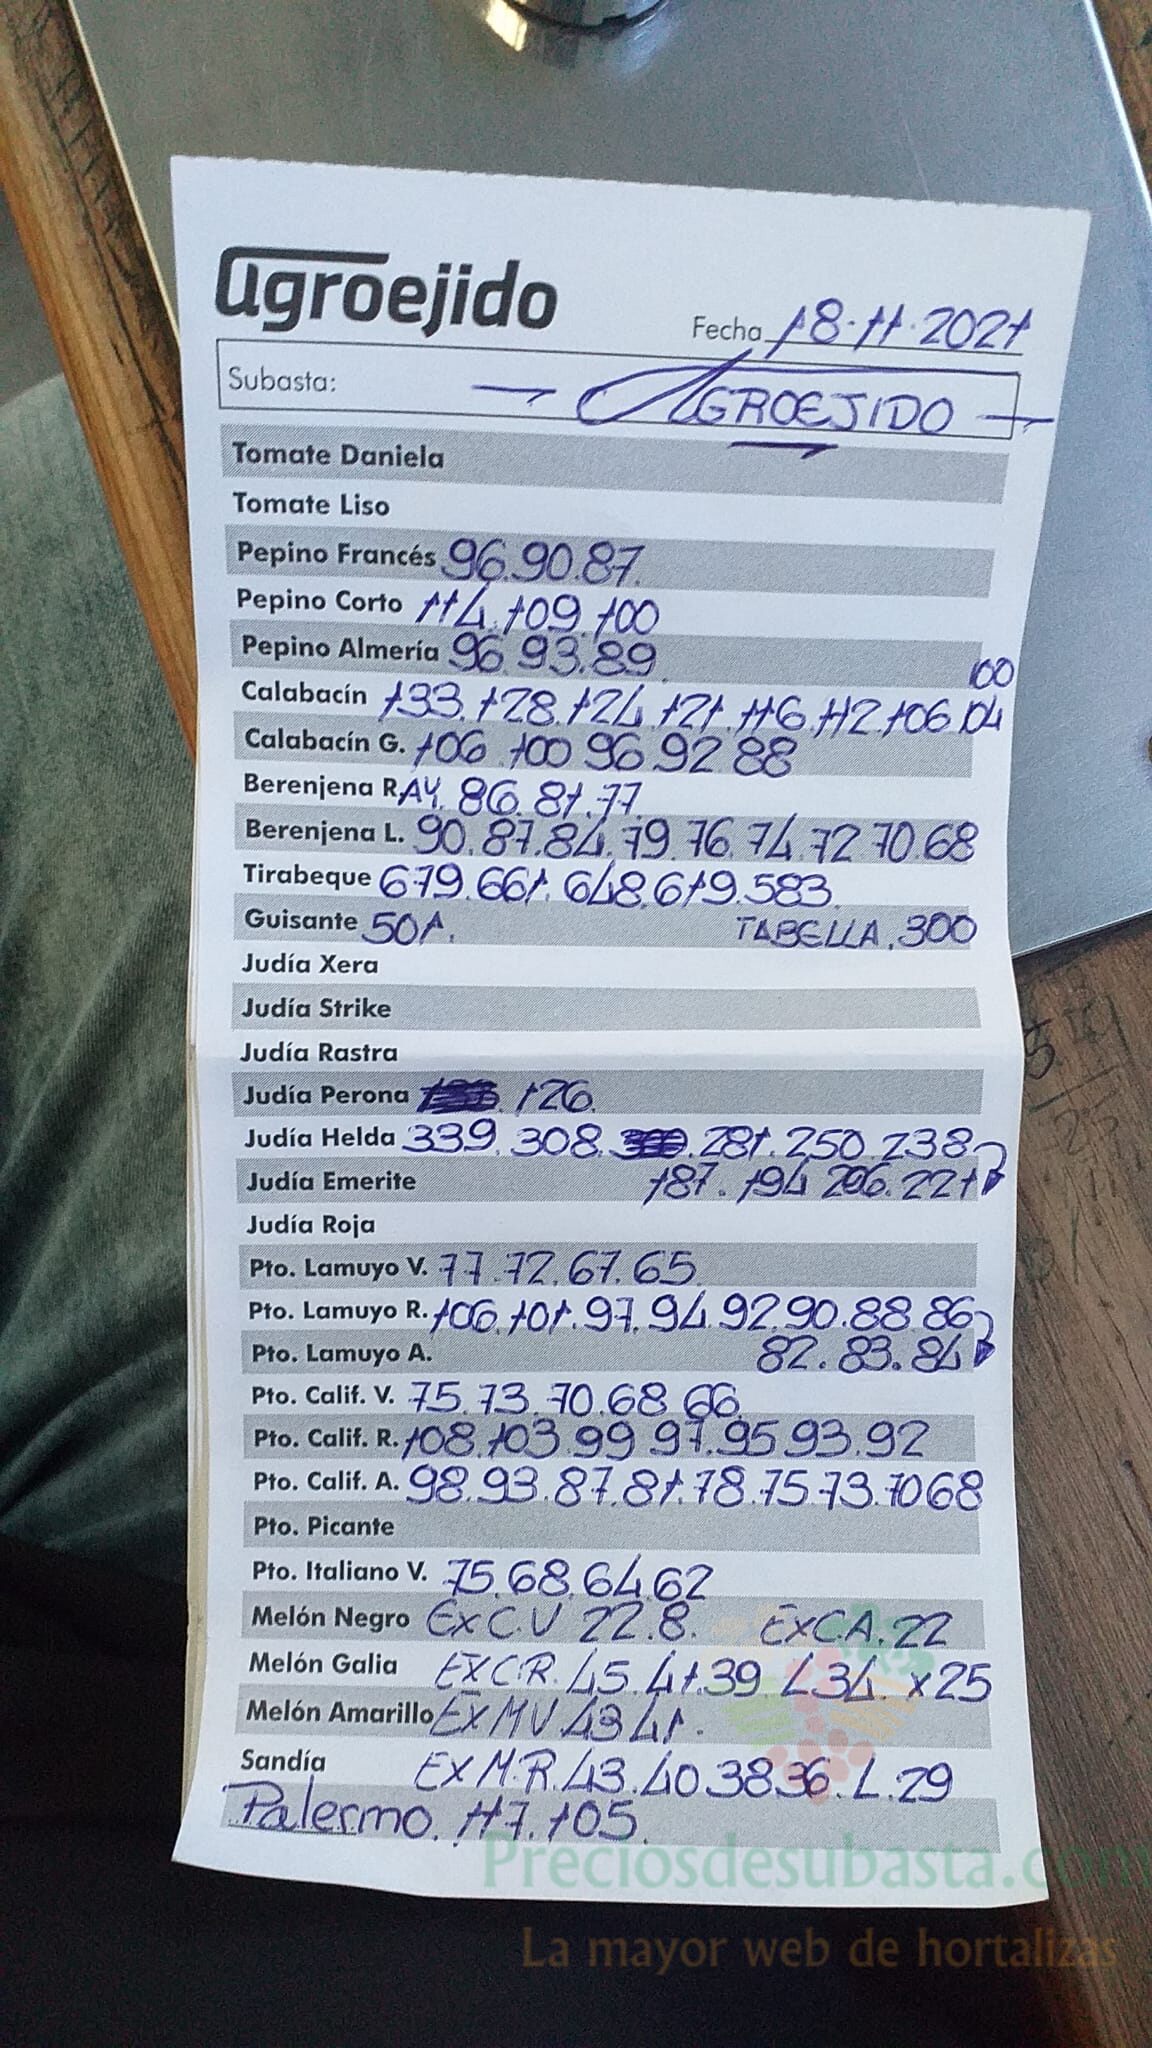 agroejido
Fecha 18-11-2021
Subasta: — AGROEJIDO —
Tomate Daniela
Tomate Liso
Pepino Francés 96.90.87.
Pepino Corto 114.109.100
Pepino Almería 96.93.89.
100
Calabacín 133.128.124.121.116.112.106.104
Calabacín G. 106.100 96 92 88
Berenjena R. AY. 86.81.77
Berenjena L. 90.87.84.79.76.74.72 70.68
Tirabeque 679.661.648.619.583.
Guisante 501. TABELLA.300
Judía Xera
Judía Strike
Judía Rastra
Judía Perona 126.
Judía Helda 339.308.281.250.238
Judía Emerite 187.194 206.221
Judía Roja
Pto. Lamuyo V. 77.72.67.65
Pto. Lamuyo R. 106.101.97.94.92.90.88.86
Pto. Lamuyo A. 82.83.84
Pto. Calif. V. 75.73.70.68.66.
Pto. Calif. R. 108.103.99 97.95 93.92
Pto. Calif. A. 98.93.87.81.78.75.73.70 68
Pto. Picante
Pto. Italiano V. 75.68.64 62
Melón Negro EXC.V 22.8. EXC.A.22
Melón Galia EXC.R.45.41.39 L34. x25
Melón Amarillo EXMV 43 41.
Sandía EXM.R.43.40.38.36.L.29
Palermo. 117.105.
Preciosdesubasta.com
La mayor web de hortalizas